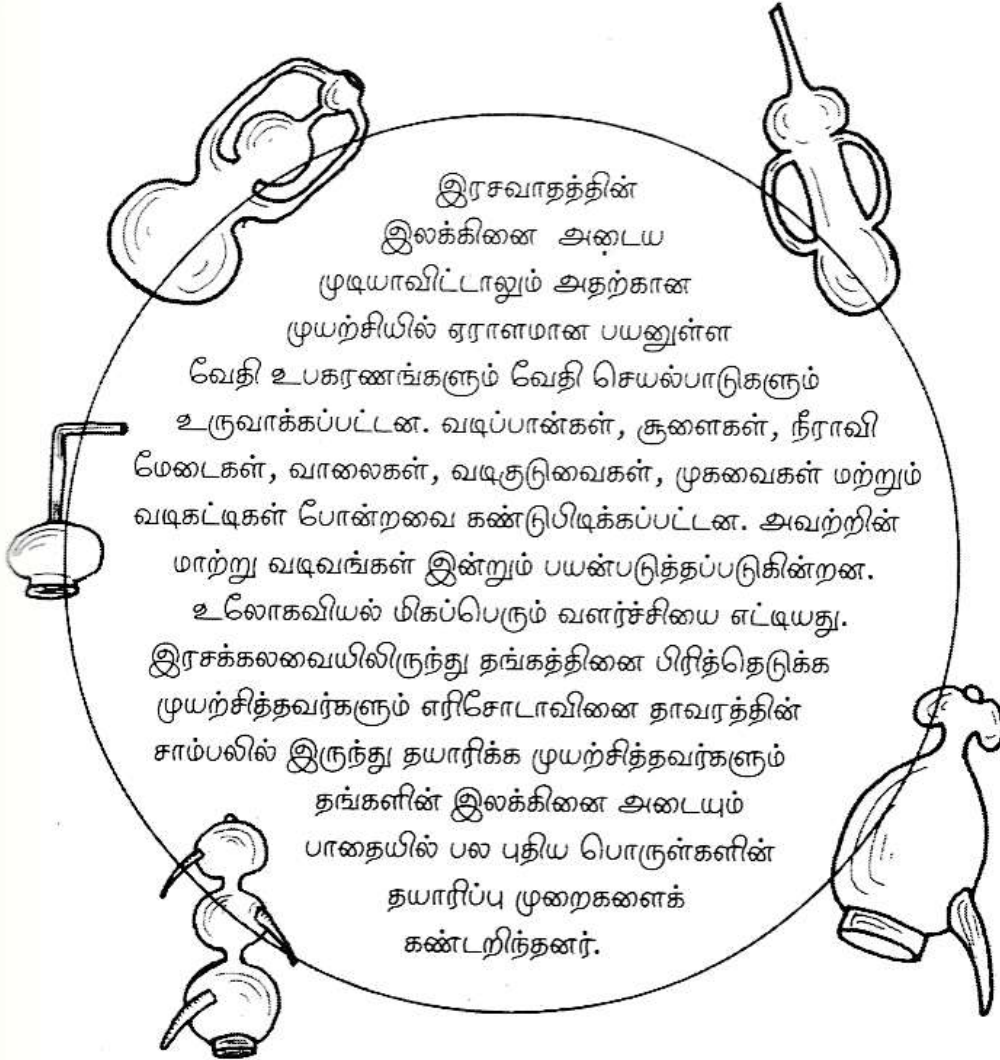 இரசவாதத்தின்
இலக்கினை அடைய
முடியாவிட்டாலும் அதற்கான
முயற்சியில் ஏராளமான பயனுள்ள
வேதி உபகரணங்களும் வேதி செயல்பாடுகளும்
உருவாக்கப்பட்டன. வடிப்பான்கள், சூளைகள், நீராவி
மேடைகள், வாலைகள், வடிகுடுவைகள், முகவைகள் மற்றும்
வடிகட்டிகள் போன்றவை கண்டுபிடிக்கப்பட்டன. அவற்றின்
மாற்று வடிவங்கள் இன்றும் பயன்படுத்தப்படுகின்றன.
உலோகவியல் மிகப்பெரும் வளர்ச்சியை எட்டியது.
இரசக்கலவையிலிருந்து தங்கத்தினை பிரித்தெடுக்க
முயற்சித்தவர்களும் எரிசோடாவினை தாவரத்தின்
சாம்பலில் இருந்து தயாரிக்க முயற்சித்தவர்களும்
தங்களின் இலக்கினை அடையும்
பாதையில் பல புதிய பொருள்களின்
தயாரிப்பு முறைகளைக்
கண்டறிந்தனர்.